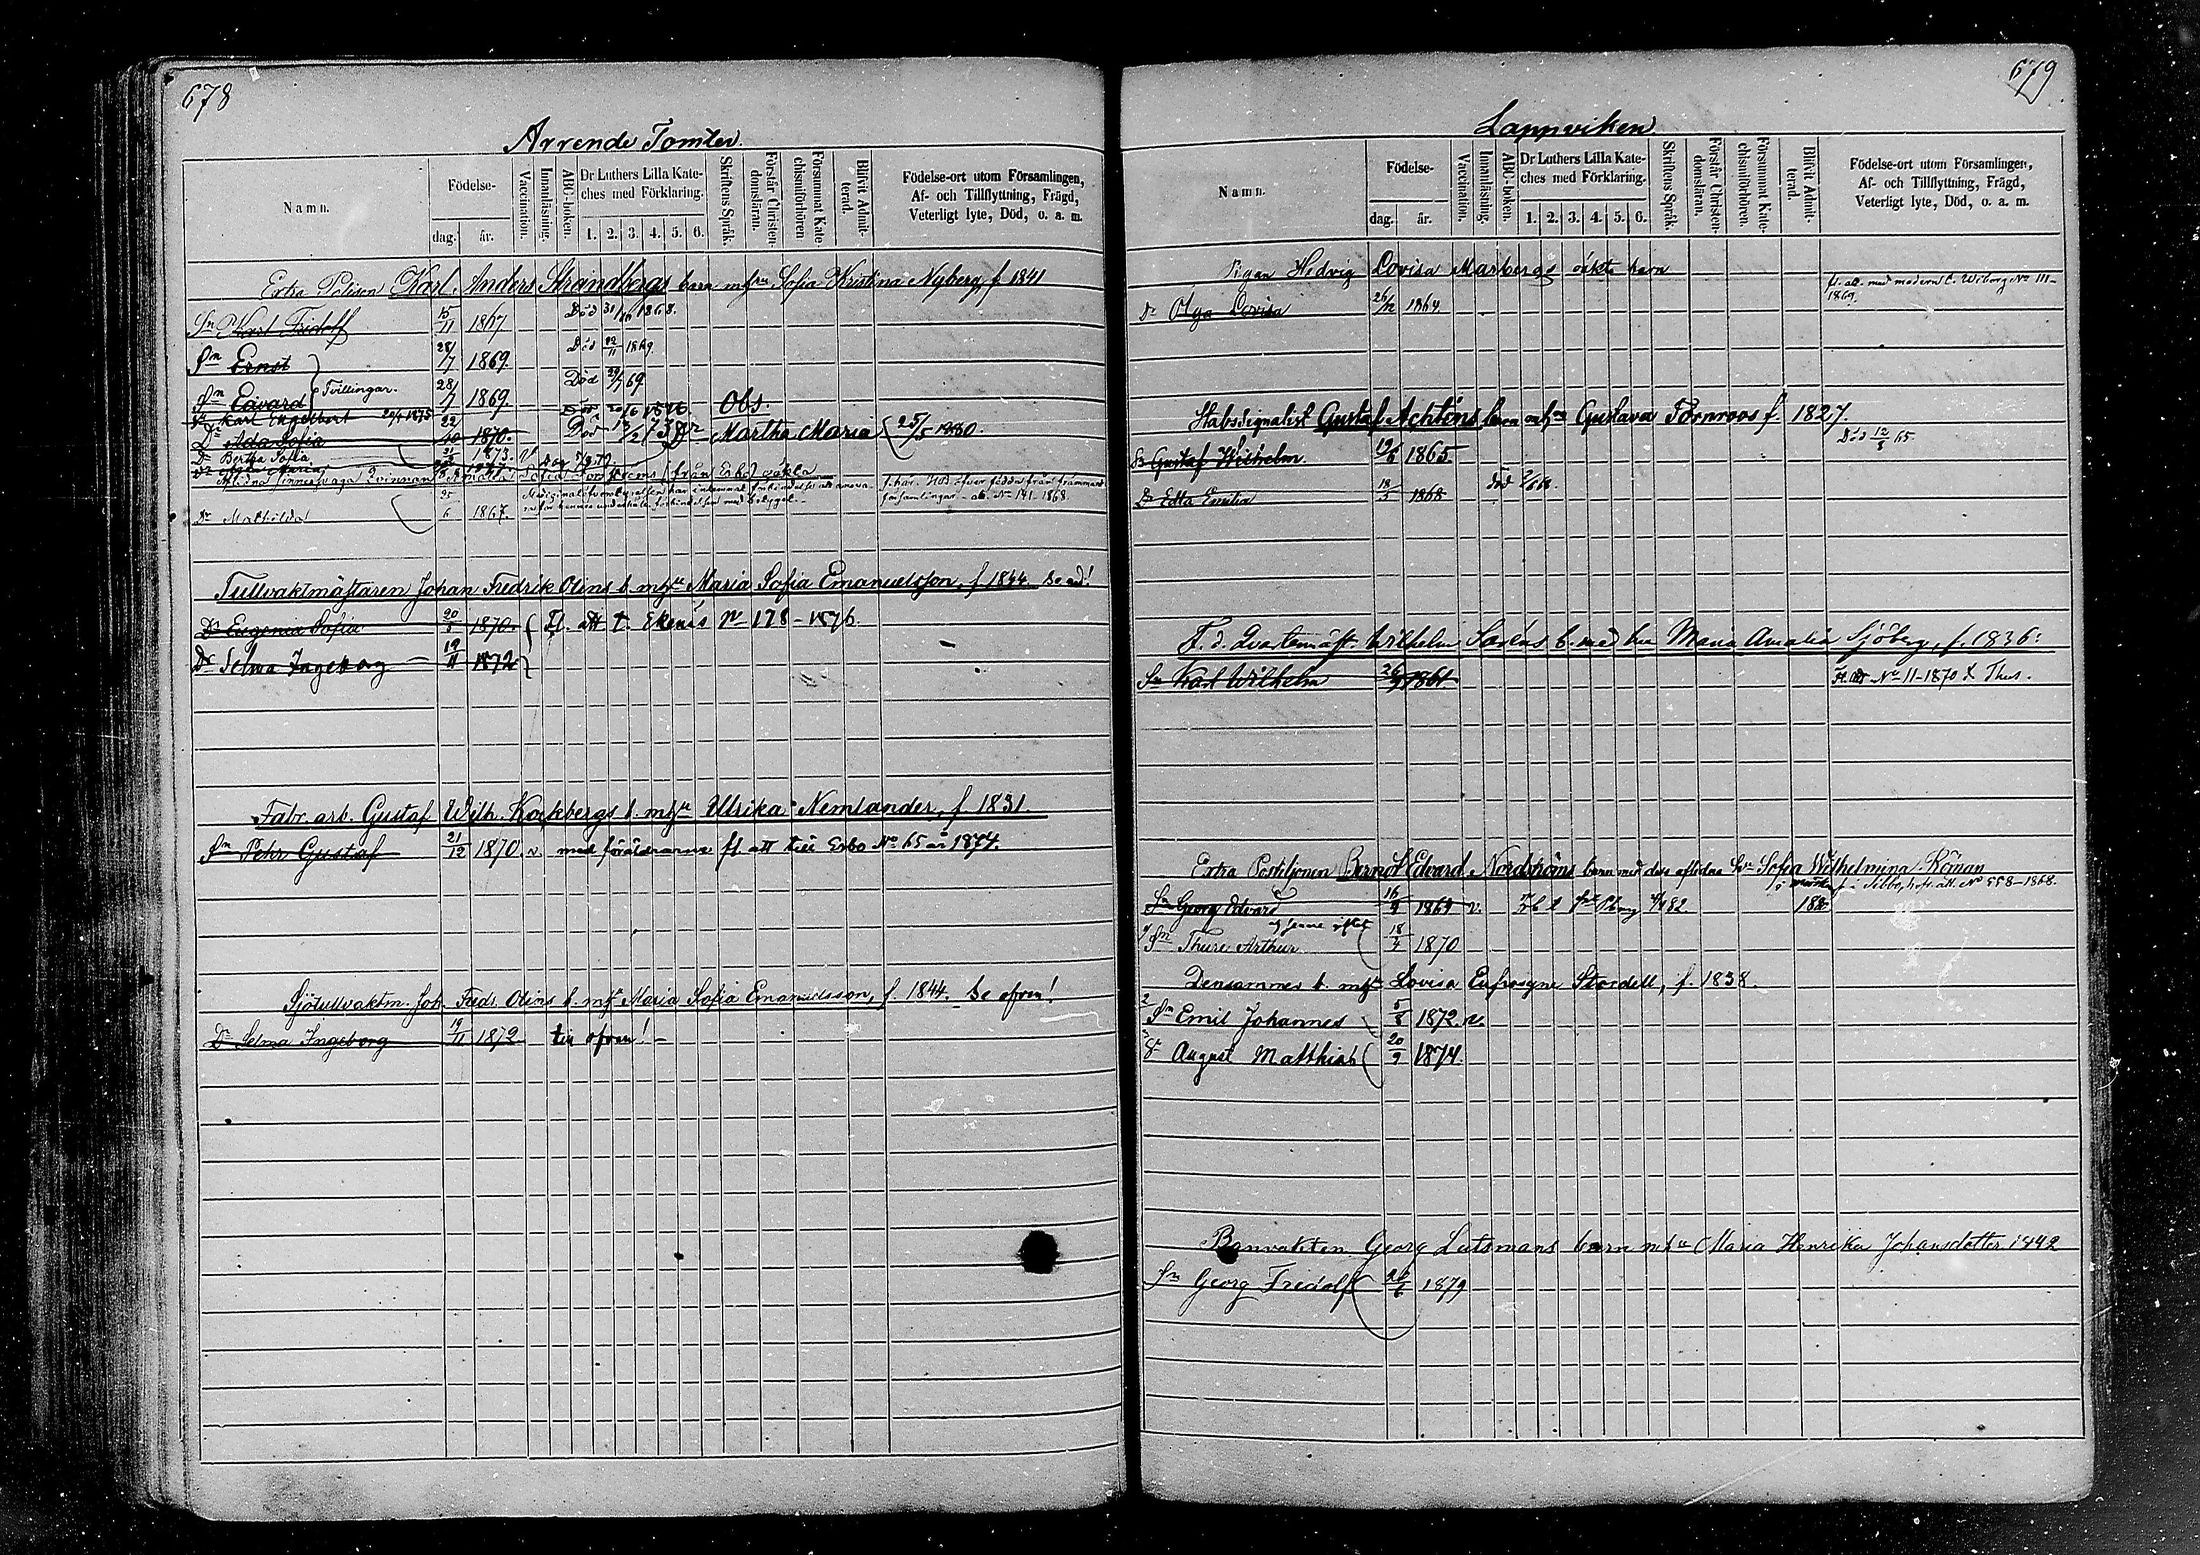 678
Arrende Tomter.
Namn.
Födelse-
dag.
år.
Vaccination.
Innanläsning.
ABC-boken.
Dr Luthers Lilla Kate-
ches med Förklaring.
1. 2. 3. 4. 5. 6.
Skriftens Språk.
Förstår Christen-
domsläran.
Försummat Kate-
chismiförhören
Blifvit Admit-
terad.
Födelse-ort utom Församlingen,
Af- och Tillflyttning, Frägd,
Veterligt lyte, Död, o. a. m.
Extra Polison Karl Anders Strandbergs barn m hu Sofia Kristina Nyberg, f 1841
Sn Karl Fridolf 15/11 1867 Död 31/10 1868.
Sn Ernst 28/7 1869. Död 12/11 1869.
Sn Edvard Tvillingar. 28/7 1869. Död 29/7 69
Karl Engelbert 20/4 1875 Obs.
Dr Ada Sofia 1870. Död Dr Martha Maria 25/5 1880.
Dr Bertha Sofia 1873. v
Dr Mathilda 25/6 1867.
Tullvaktmästaren Johan Fredrik Olins b. m hu Maria Sofia Emanuelsson, f 1844. Se ned!
Dr Eugenia Sofia 20/3 1870. Fl. att t. Ekenäs No 178-1876.
Dr Selma Ingeborg 19/11 1872
Fabr. arb. Gustaf Wilh. Kockbergs b. m hu Ulrika Nemlander, f 1831.
Sn Pehr Gustaf 21/12 1870 v. med föräldrarne fl. att till Esbo No 65 år 1874.
Sjötullvaktm. Joh. Fredr. Olins b. m hu Maria Sofia Emanuelsson, f. 1844. Se ofvan!
Dr Selma Ingeborg 19/11 1872 till ofvan! -
679
Lappviken
Namn.
Födelse-
dag.
år.
Vaccination.
Innanläsning.
ABC-boken.
Dr Luthers Lilla Kate-
ches med Förklaring.
1. 2. 3. 4. 5. 6.
Skriftens Språk.
Förstår Christen-
domsläran.
Försummat Kate-
chismiförhören.
Blifvit Admit-
terad.
Födelse-ort utom Församlingen,
Af- och Tillflyttning, Frägd,
Veterligt lyte, Död, o. a. m.
Pigan Hedvig Lovisa Marbergs oäkta barn
fl. att. med modern t. Wiborg No 111-
1869.
Dr Olga Lovisa 26/12 1864.
Stabssignalist Gustaf Achtins barn m hu Gustava Törnroos f. 1827.
Död 12/8 65.
Sn Gustaf Wilhelm 19/6 1865
Dr Edla Emilia 18/3 1868 Död
F. d. Qvartermäst. Wilhelm b. med hu Maria Amalia Sjöberg, f. 1836:
Sn Karl Wilhelm 1861. Fl. att No 11-1870 t. Thus.
Extra Postiljonen Edvard Nordströms barn med dess aflidna hu Sofia Wilhelmina Röman
f i Sibbo, hoft. att. No 558-1868.
Sn Georg Edvard 16/9 1869 v.
1 Sn Thure Arthur 18/4 1870
Densammes b. m hu Lovisa Eufrosyne Stordell, f. 1838.
2 Sn Emil Johannes 5/8 1872. v.
3 Sn August Matthias 20/9 1874.
Banvakten Georg Lutsmans barn m hu Maria Henrika Johansdotter 1842
Sn Georg Fridolf 26/6 1879